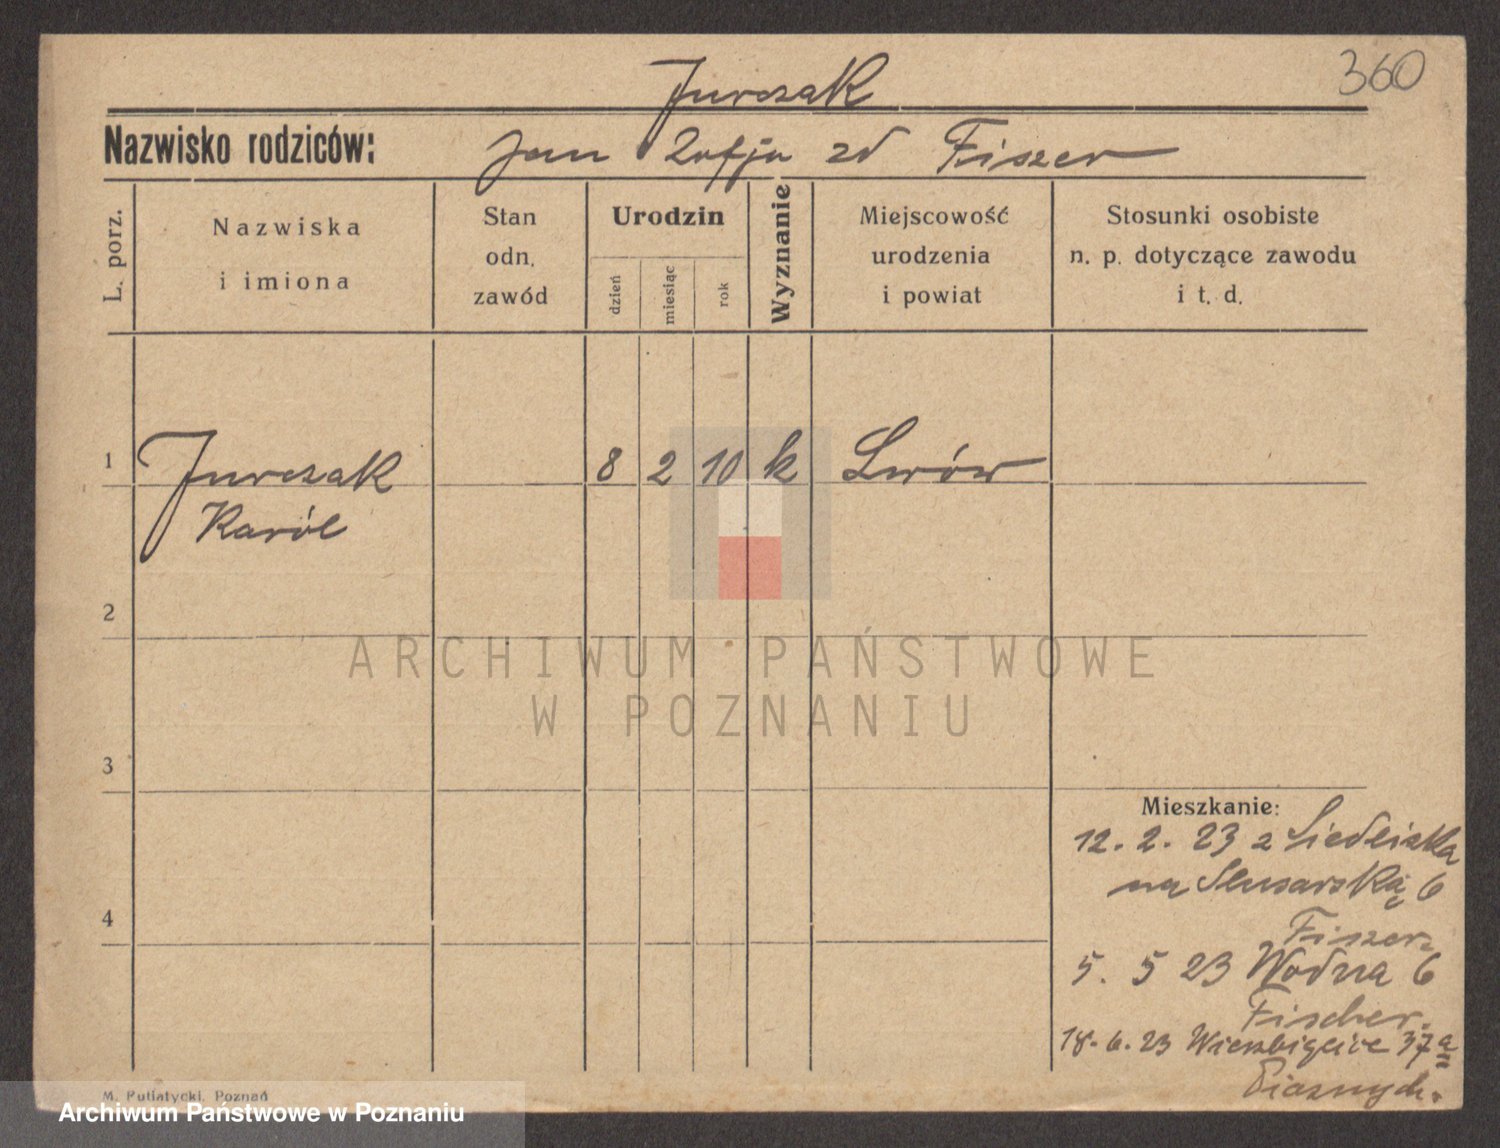 360
Jurczak
Nazwisko rodziców: Jan Zofja zd Fiszer
L. porz.
Nazwiska i imiona
Stan odn. zawód
Urodzin
dzień
miesiąc
rok
Wyznanie
Miejscowość urodzenia i powiat
Stosunki osobiste n. p. dotyczące zawodu i t. d.
1 Jurczak 8 2 10 k Lwów
Karól
2
3
4
Mieszkanie:
12. 2. 23 z Siedliska
na Slusarską 6
Fiszer
5. 5 23 Wodna 6
Fischer.
18. 6. 23 Wierzbięcice 37a
M. Putiatycki, Poznań
ARCHIWUM PAŃSTWOWE
W POZNANIU
Archiwum Państwowe w Poznaniu